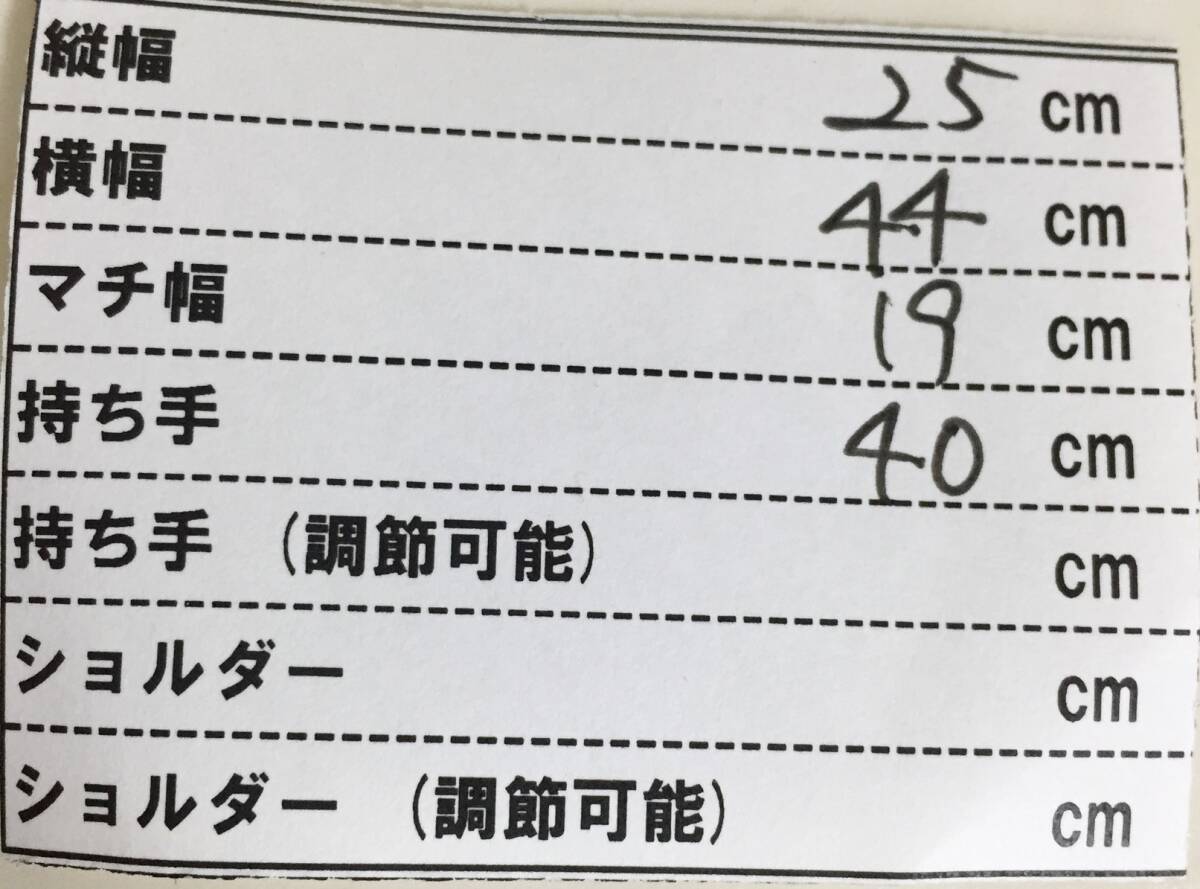 縦幅 25 cm
横幅 44 cm
マチ幅 19 cm
持ち手 40 cm
持ち手 (調節可能) cm
ショルダー cm
ショルダー (調節可能) cm